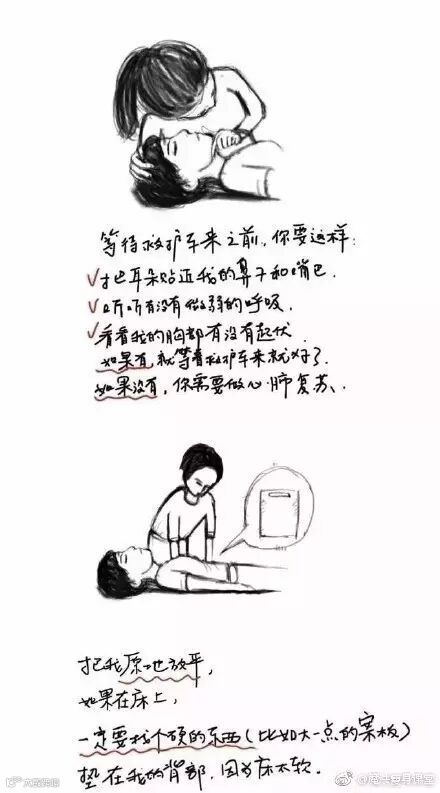 等待救护车来之前，你要这样：
√把耳朵贴近我的鼻子和嘴巴.
√听听有没有微弱的呼吸.
√看看我的胸部有没有起伏
如果有，就等着救护车来就好了.
如果没有，你需要做心肺复苏、
把我原地放平，
如果在床上，
一定要找个硬的东西（比如大一点的案板）
垫在我的背部，因为床太软.